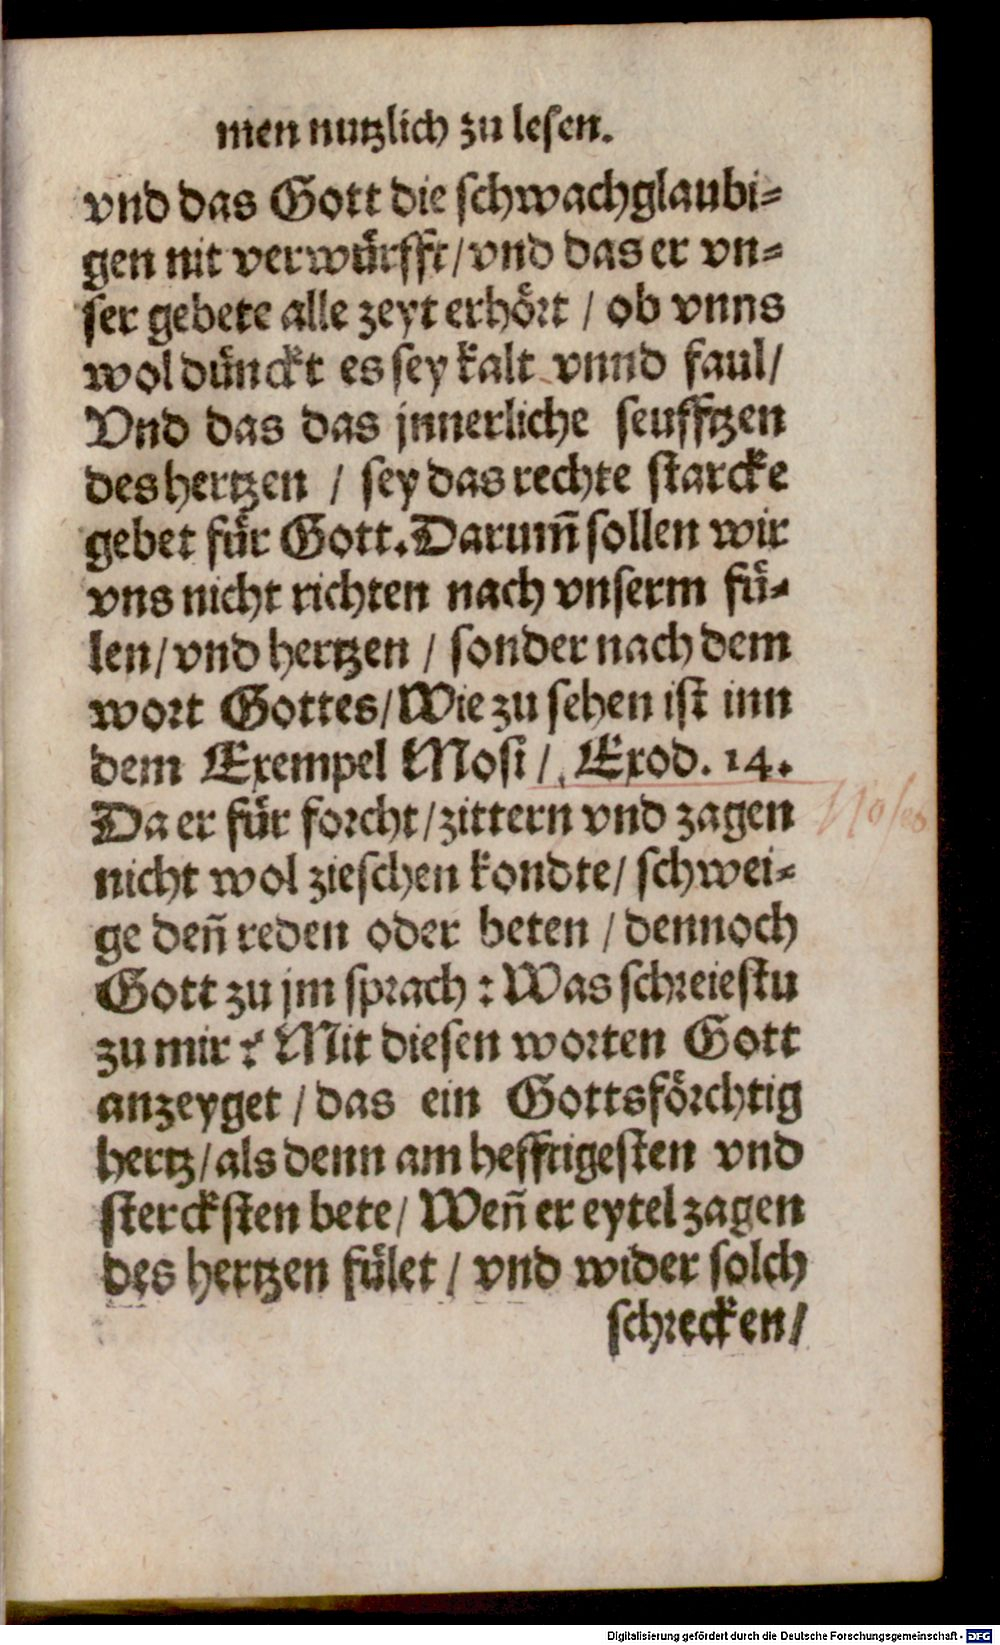 men nutzlich zu lesen.
vnd das Gott die schwachglaubi=
gen nit verwürfft/vnd das er vn=
ser gebete alle zeyt erhört / ob vnns
wol dünckt es sey kalt vnnd faul/
Vnd das das jnnerliche seufftzen
des hertzen / sey das rechte starcke
gebet für Gott. Darum̃ sollen wir
vns nicht richten nach vnserm fü=
len/vnd hertzen / sonder nach dem
wort Gottes/Wie zu sehen ist inn
dem Exempel Mosi /. Exod. 14.
Da er für forcht/zittern vnd zagen
nicht wol zieschen kondte/ schwei=
ge deñ reden oder beten / dennoch
Gott zu jm sprach : Was schreiestu
zu mir ? Mit diesen worten Gott
anzeyget / das ein Gottsförchtig
hertz/als denn am hefftigesten vnd
stercksten bete/ Weñ er eytel zagen
des hertzen fület / vnd wider solch
schrecken/
Moses
Digitalisierung gefördert durch die Deutsche Forschungsgemeinschaft - DFG